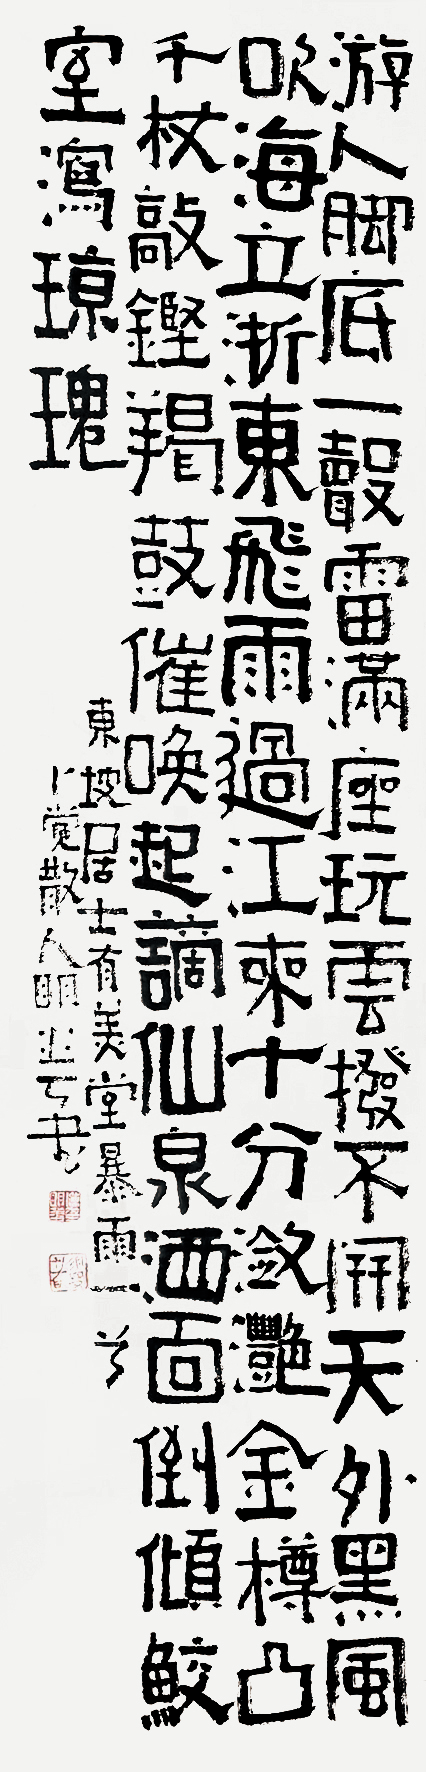 游人脚底一聲雷滿座玩雲撥不開天外黑風
吹海立浙東飛雨過江來十分瀲灩金樽凸
千杖敲鏗羯鼓催喚起謫仙泉洒面倒傾鮫
室瀉瓊瑰
東坡居士有美堂暴雨一首
卜覺散人書